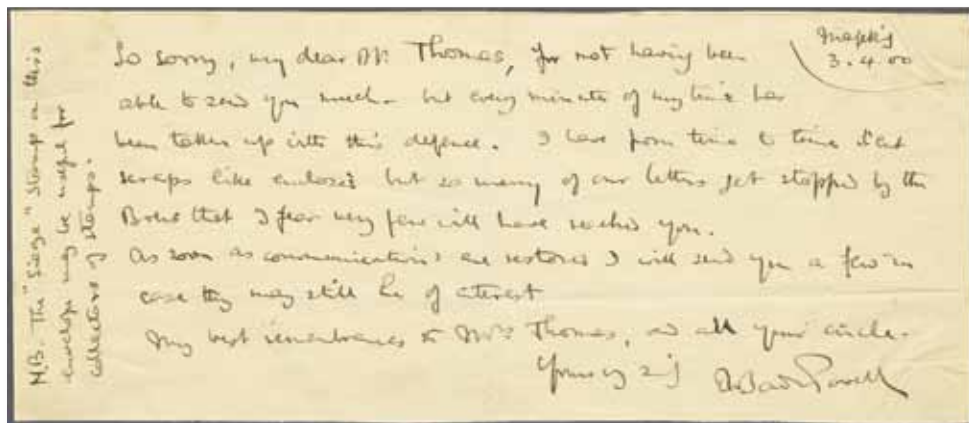 Mafeking
3.4.00
So sorry, my dear Mr. Thomas, for not having been
able to send you much - but every minute of my time has
been taken up with this defence. I have from time to time sent
scraps like enclosed but so many of our letters get stopped by the
Boers that I fear very few will have reached you.
As soon as communications are restored I will send you a few in
case they may still be of interest
My best remembrances to Mrs Thomas, and all your circle.
Yours
Baden Powell
N.B. The "Siege" stamp on this
envelope may be useful for
collectors of stamps.